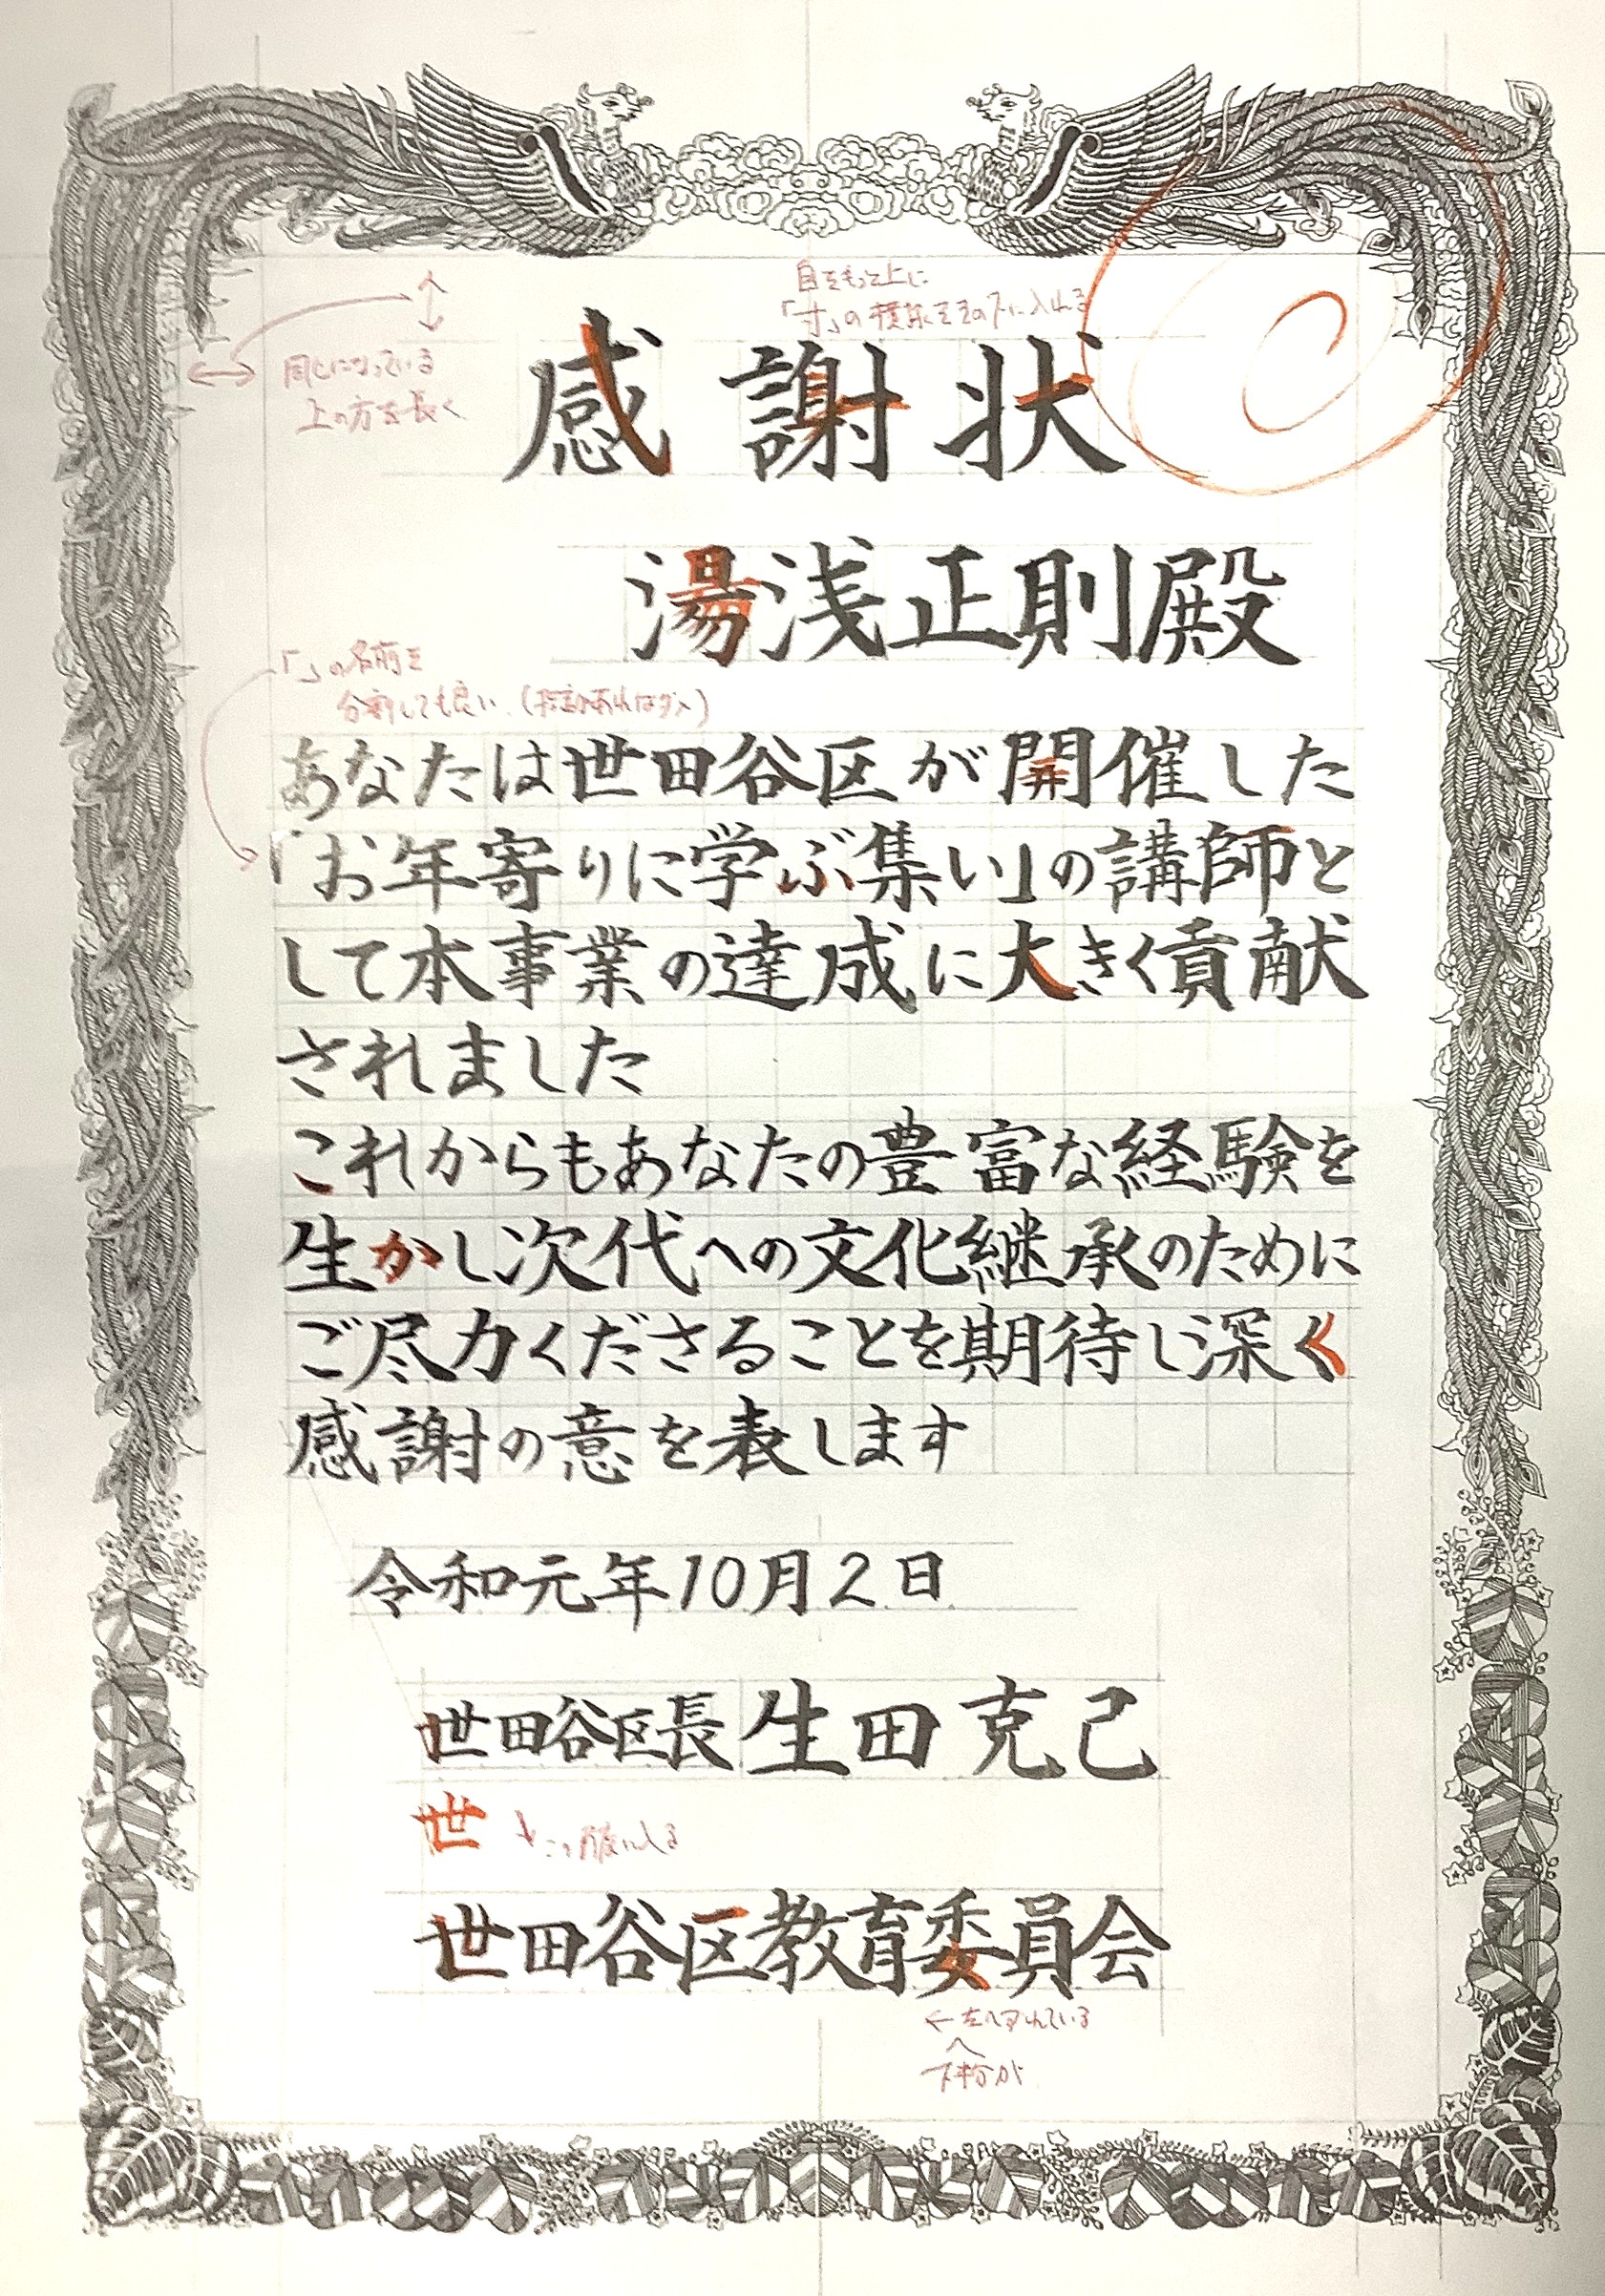 自をもっと上に
「寸」の横画をその下に入れる
同じになっている
上の方を長く
感謝状
湯浅正則殿
「」の名前を
分割しても良い（指定があればダメ）
あなたは世田谷区が開催した
「お年寄りに学ぶ集い」の講師と
して本事業の達成に大きく貢献
されました
これからもあなたの豊富な経験を
生かし次代への文化継承のために
ご尽力くださることを期待し深く
感謝の意を表します
令和元年10月2日
世田谷区長 生田克己
世
世田谷区教育委員会
←左へずれている
下部分が